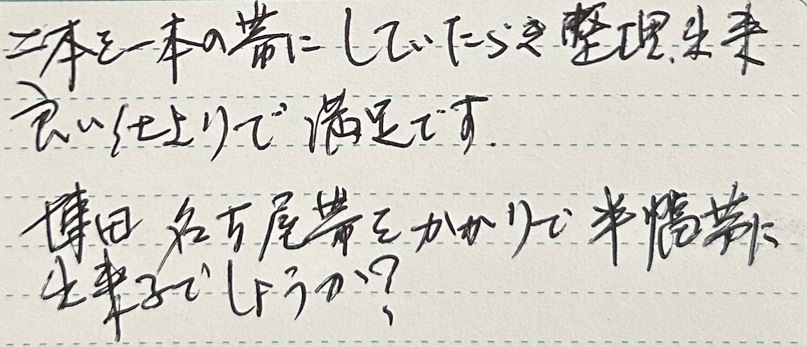 二本を一本の帯にしていただき整理出来
良い仕上りで満足です.
博田 名古屋帯をかがりで半幅帯に
出来るでしょうか?